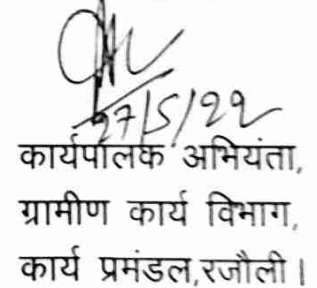 27/5/22
कार्यपालक अभियंता,
ग्रामीण कार्य विभाग,
कार्य प्रमंडल,रजौली।